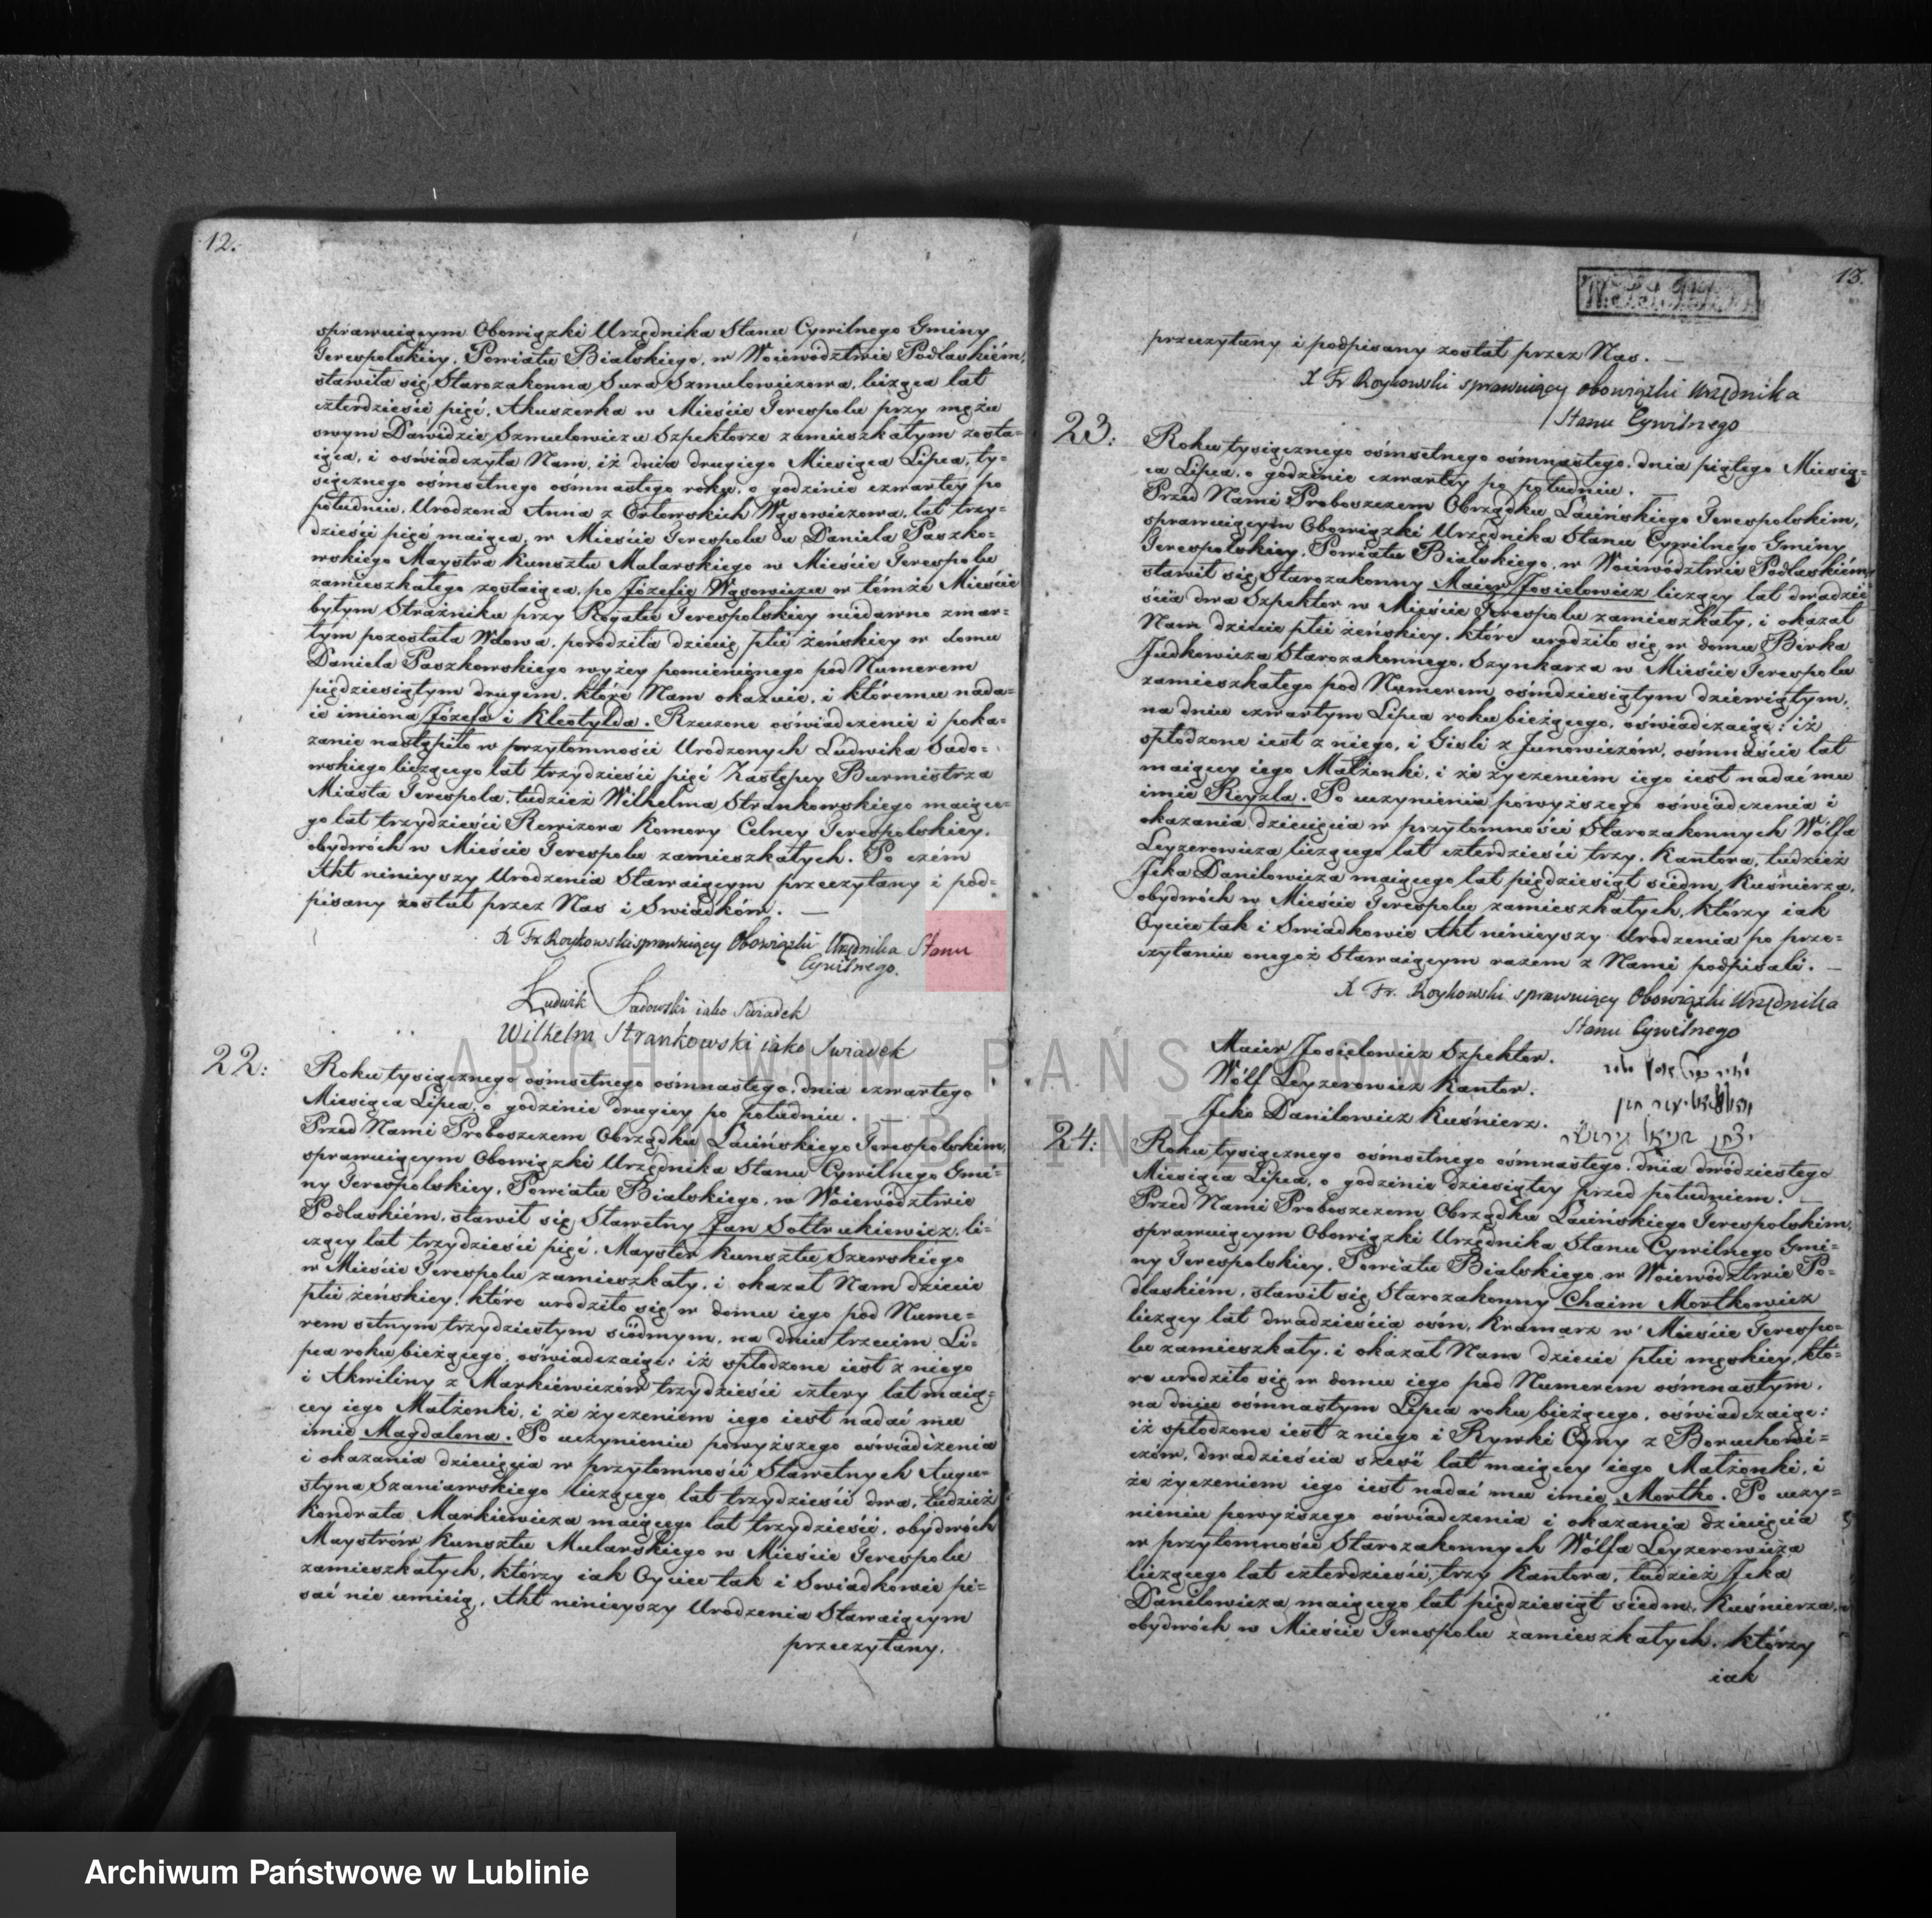 12.
sprawuiącym Obowiązki Urzędnika Stanu Cywilnego Gminy
Terespolskiey, Powiatu Bialskiego, w Woiewództwie Podlaskiém,
stawiła się Starozakonna Sura Szmulowiczowa, licząca lat
czterdzieści pięć, Akuszerka w Mieście Terespolu przy mężu
swym Dawidzie Szmulowiczu Szpektorze zamieszkałym zosta=
iąca, i oświadczyła Nam, iż dnia drugiego Miesiąca Lipca, ty=
siącznego osmsetnego ośmnastego roku, o godzinie czwartey po
południu, Urodzona Anna z Orłowskich Wąsowiczowa, lat trzy=
dzieści pięć maiąca, w Mieście Terespolu u Daniela Paszko=
wskiego Maystra Kunsztu Malarskiego w Mieście Terespolu
zamieszkałego zostaiąca, po Józefie Wąsowiczu w témże Mieście
byłym Strażniku przy Rogatce Terespolskiey niedawno zmar=
łym pozostała Wdowa, porodziła dziecię płci żeńskiey w domu
Daniela Paszkowskiego wyżey pomienionego pod Numerem
pięćdziesiątym drugim, które Nam okazuie, i któremu nada=
ie imiona Józefa i Kleotylda. Rzeczone oświadczenie i poka=
zanie nastąpiło w przytomności Urodzonych Ludwika Sado=
wskiego liczącego lat trzydzieści pięć Zastępcy Burmistrza
Miasta Terespola, tudzież Wilhelma Strankowskiego maiące=
go lat trzydzieści Rewizora Komory Celney Terespolskiey,
obydwóch w Mieście Terespolu zamieszkałych. Po czém
Akt ninieyszy Urodzenia Stawaiącym przeczytany i pod=
pisany został przez Nas i Swiadków. —
X Fr Roykowski sprawuiący Obowiązki Urzędnika Stanu
Cywilnego.
Ludwik Sadowski iako Swiadek
Wilhelm Strankowski iako Swiadek
22:
Roku tysiącznego ośmsetnego ośmnastego, dnia czwartego
Miesiąca Lipca, o godzinie drugiey po południu.
Przed Nami Proboszczem Obrządku Łacińskiego Terespolskim,
sprawuiącym Obowiązki Urzędnika Stanu Cywilnego Gmi=
ny Terespolskiey, Powiatu Bialskiego, w Woiewództwie
Podlaskiém, stawił się Sławetny Jan Sołtrukiewicz, li=
czący lat trzydzieści pięć, Mayster Kunsztu Szewskiego
w Mieście Terespolu zamieszkały, i okazał Nam dziecie
płci żeńskiey, które urodziło się w domu iego pod Nume=
rem setnym trzydziestym siódmym, na dniu trzecim Li=
pca roku bieżącego, oświadczaiąc: iż spłodzone iest z niego
i Akwiliny z Markiewiczów trzydzieści cztery lat maią=
cey iego Małżonki, i że życzeniem iego iest nadać mu
imie Magdalena. Po uczynieniu powyższego oświadczenia
i okazania dziecięcia w przytomności Sławetnych Augu=
styna Szaniawskiego liczącego lat trzydzieści dwa, tudzież
Kondrata Markiewicza maiącego lat trzydzieści, obydwóch
Maystrów Kunsztu Mularskiego w Mieście Terespolu
zamieszkałych, którzy iak Oyciec tak i Swiadkowie pi=
sać nie umieią, Akt ninieyszy Urodzenia Stawaiącym
przeczytany,
13.
przeczytany i podpisany został przez Nas. —
X Fr Roykowski sprawuiący obowiązki Urzędnika
Stanu Cywilnego
23:
Roku tysiącznego ośmsetnego ośmnastego, dnia piątego Miesią=
ca Lipca, o godzinie czwartey po południu.
Przed Nami Proboszczem Obrządku Łacińskiego Terespolskim,
sprawuiącym Obowiązki Urzędnika Stanu Cywilnego Gminy
Terespolskiey, Powiatu Bialskiego, w Woiewództwie Podlaskiém,
stawił się Starozakonny Maier Josielowicz liczący lat dwadzie
ścia dwa Szpektor w Mieście Terespolu zamieszkały, i okazał
Nam dziecie płci żeńskiey, które urodziło się w domu Berka
Judkowicza Starozakonnego, Szynkarza w Mieście Terespolu
zamieszkałego pod Numerem ośmdziesiątym dziewiątym,
na dniu czwartym Lipca roku bieżącego, oświadczaiąc: iż
spłodzone iest z niego, i Gisli z Junowiczów, ośmnaście lat
maiącey iego Małżonki, i że życzeniem iego iest nadać mu
imie Reyzla. Po uczynieniu powyższego oświadczenia i
okazania dziecięcia w przytomności Starozakonnych Wólfa
Leyzerowicza liczącego lat czterdzieści trzy, Kantora, tudzież
Jcka Danilowicza maiącego lat pięćdziesiąt siedm, Kuśnierza,
obydwóch w Mieście Terespolu zamieszkałych, którzy iak
Oyciec tak i Swiadkowie Akt ninieyszy Urodzenia po prze=
czytaniu onegoż Stawaiącym razem z Nami podpisali. —
X Fr. Roykowski sprawuiący Obowiązki Urzędnika
Stanu Cywilnego
Maier Josielowicz Szpektor.
Wólf Leyzerowicz Kantor.
Jcko Danilowicz Kuśnierz.
24:
Roku tysiącznego ośmsetnego ośmnastego, dnia dwódziestego
Miesiąca Lipca, o godzinie dziesiątey przed południem. —
Przed Nami Proboszczem Obrządku Łacińskiego Terespolskim,
sprawuiącym Obowiązki Urzędnika Stanu Cywilnego Gmi=
ny Terespolskiey, Powiatu Bialskiego, w Woiewództwie Po=
dlaskiém, stawił się Starozakonny Chaim Mortkowicz
liczący lat dwadzieścia ośm, Kramarz w Mieście Terespo=
lu zamieszkały, i okazał Nam dziecie płci męskiey, któ=
re urodziło się w domu iego pod Numerem ośmnastym,
na dniu ośmnastym Lipca roku bieżącego, oświadczaiąc:
iż spłodzone iest z niego i Rywki Cyny z Boruchowi=
czów, dwadzieścia sześć lat maiącey iego Małżonki, i
że życzeniem iego iest nadać mu imie Mortko. Po uczy=
nieniu powyższego oświadczenia i okazania dziecięcia
w przytomności Starozakonnych Wólfa Leyzerowicza
liczącego lat czterdzieści trzy Kantora, tudzież Jcka
Danilowicza maiącego lat pięćdziesiąt siedm, Kuśnierza,
obydwóch w Mieście Terespolu zamieszkałych, którzy
iak
ARCHIWUM PAŃSTWOWE
W LUBLINIE
Archiwum Państwowe w Lublinie